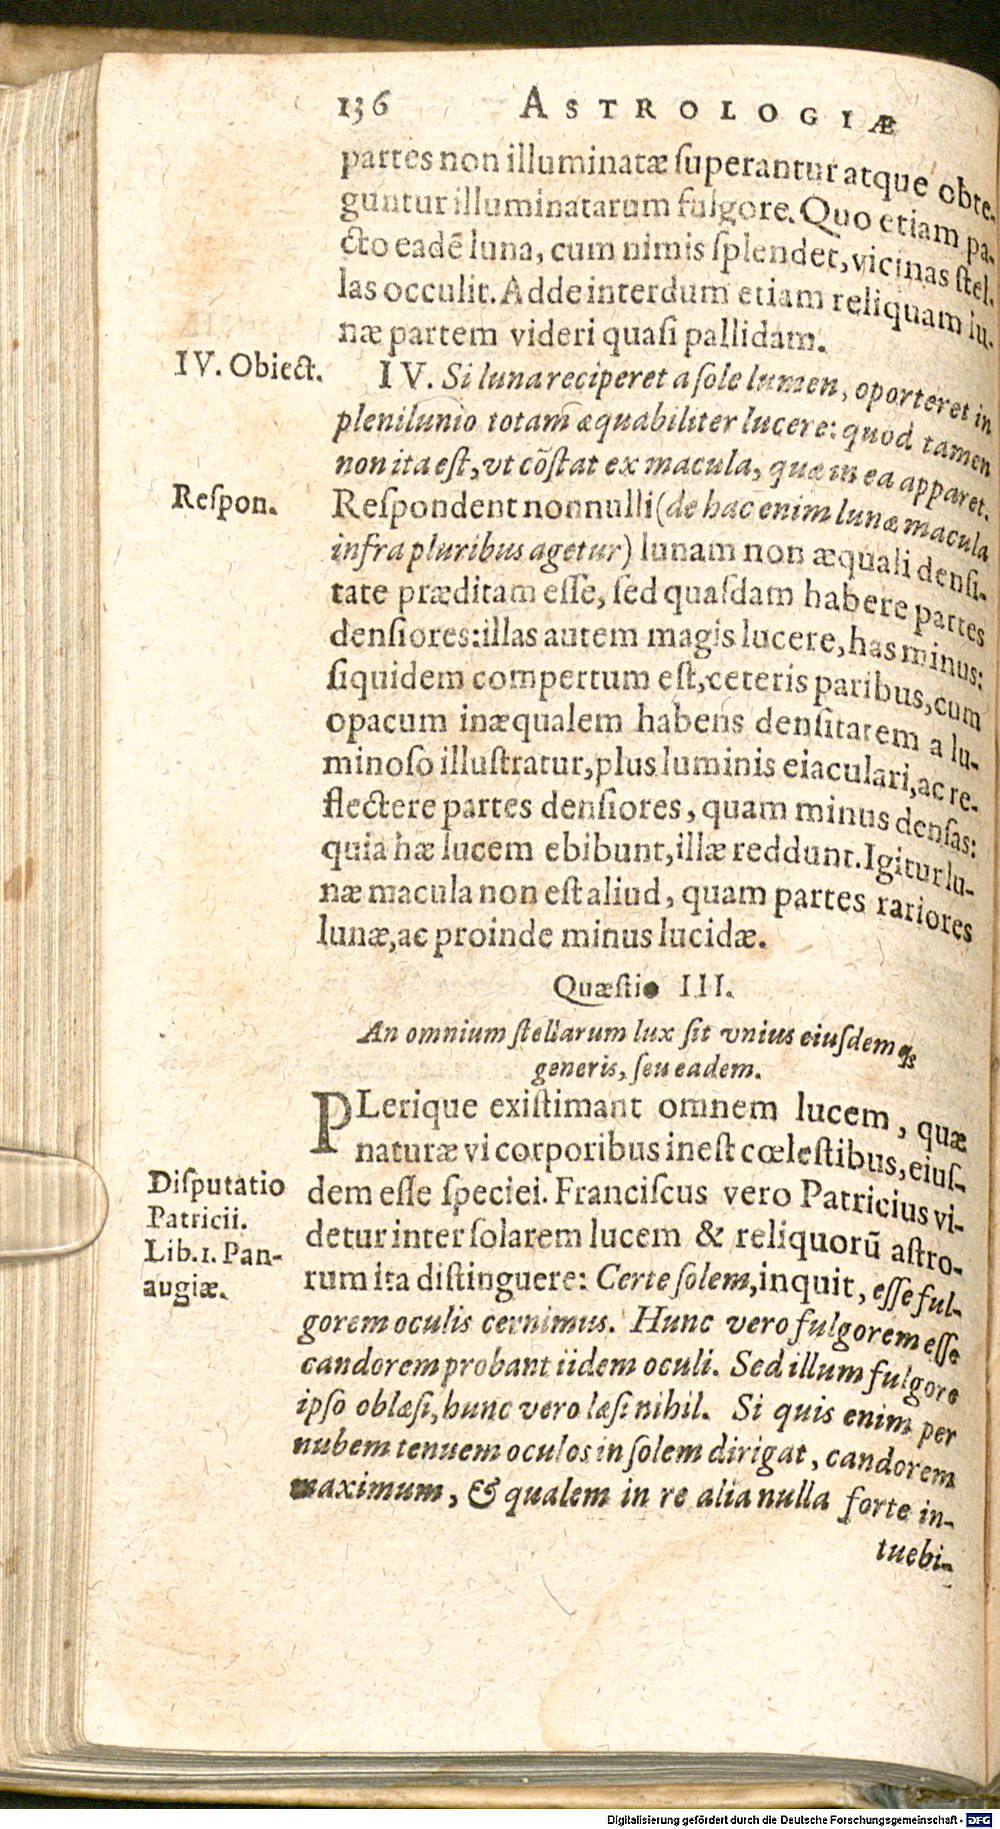 136 ASTROLOGIÆ
partes non illuminatæ ſuperantur atque obte-
guntur illuminatarum fulgore. Quo etiam pa-
cto eadē luna, cum nimis ſplendet, vicinas ſtel-
las occulit. Adde interdum etiam reliquam lu-
næ partem videri quaſi pallidam.
IV. Obiect.
IV. Si luna reciperet a ſole lumen, oporteret in
plenilunio totam æquabiliter lucere: quod tamen
non ita eſt, vt cōſtat ex macula, quæ in ea apparet.
Reſpon.
Reſpondent nonnulli (de hac enim lunæ macula
infra pluribus agetur) lunam non æquali denſi-
tate præditam eſſe, ſed quaſdam habere partes
denſiores: illas autem magis lucere, has minus:
ſiquidem compertum eſt, ceteris paribus, cum
opacum inæqualem habens denſitatem a lu-
minoſo illuſtratur, plus luminis eiaculari, ac re-
flectere partes denſiores, quam minus denſas:
quia hæ lucem ebibunt, illæ reddunt. Igitur lu-
næ macula non eſt aliud, quam partes rariores
lunæ, ac proinde minus lucidæ.
Quæſtio III.
An omnium ſtellarum lux ſit vnius eiuſdemq́;
generis, ſeu eadem.
PLerique exiſtimant omnem lucem, quæ
naturæ vi corporibus ineſt cœleſtibus, eiuſ-
Diſputatio
Patricii.
Lib. 1. Pan-
augiæ.
dem eſſe ſpeciei. Franciſcus vero Patricius vi-
detur inter ſolarem lucem & reliquorū aſtro-
rum ita diſtinguere: Certe ſolem, inquit, eſſe ful-
gorem oculis cernimus. Hunc vero fulgorem eſſe
candorem probant iidem oculi. Sed illum fulgore
ipſo oblæſi, hunc vero læſi nihil. Si quis enim per
nubem tenuem oculos in ſolem dirigat, candorem
maximum, & qualem in re alia nulla forte in-
tuebi-
Digitalisierung gefördert durch die Deutsche Forschungsgemeinschaft - DFG